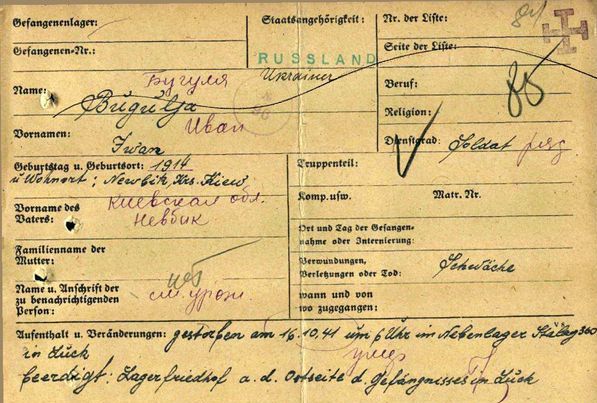 Gefangenenlager:
Staatsangehörigkeit:
Nr. der Liste: 84
Gefangenen-Nr.:
RUSSLAND
Seite der Liste:
Ukrainer
85
Бугуля
Beruf:
Name: Bugulja
Religion:
Иван
Vornamen: Iwan
Dienstgrad: Soldat ряд
Geburtstag u. Geburtsort: 1914
Truppenteil:
u Wohnort; Newbik Krs. Kiew
Komp. usw.
Matr. Nr.
Vorname des
Vaters:
Киевская обл.
Невбик
Ort und Tag der Gefangen-
nahme oder Internierung:
Familienname der
Mutter:
Verwundungen,
Verletzungen oder Tod: Schwäche
Name u. Anschrift der
zu benachrichtigenden
Person:
см. урож.
wann und von
wo zugegangen:
Aufenthalt u. Veränderungen: gestorben am 16.10.41 um 6 Uhr im Nebenlager Stalag 360
in Luck
умер
Beerdigt: Lagerfriedhof a. d. Ostseite d. Gefängnisses in Luck